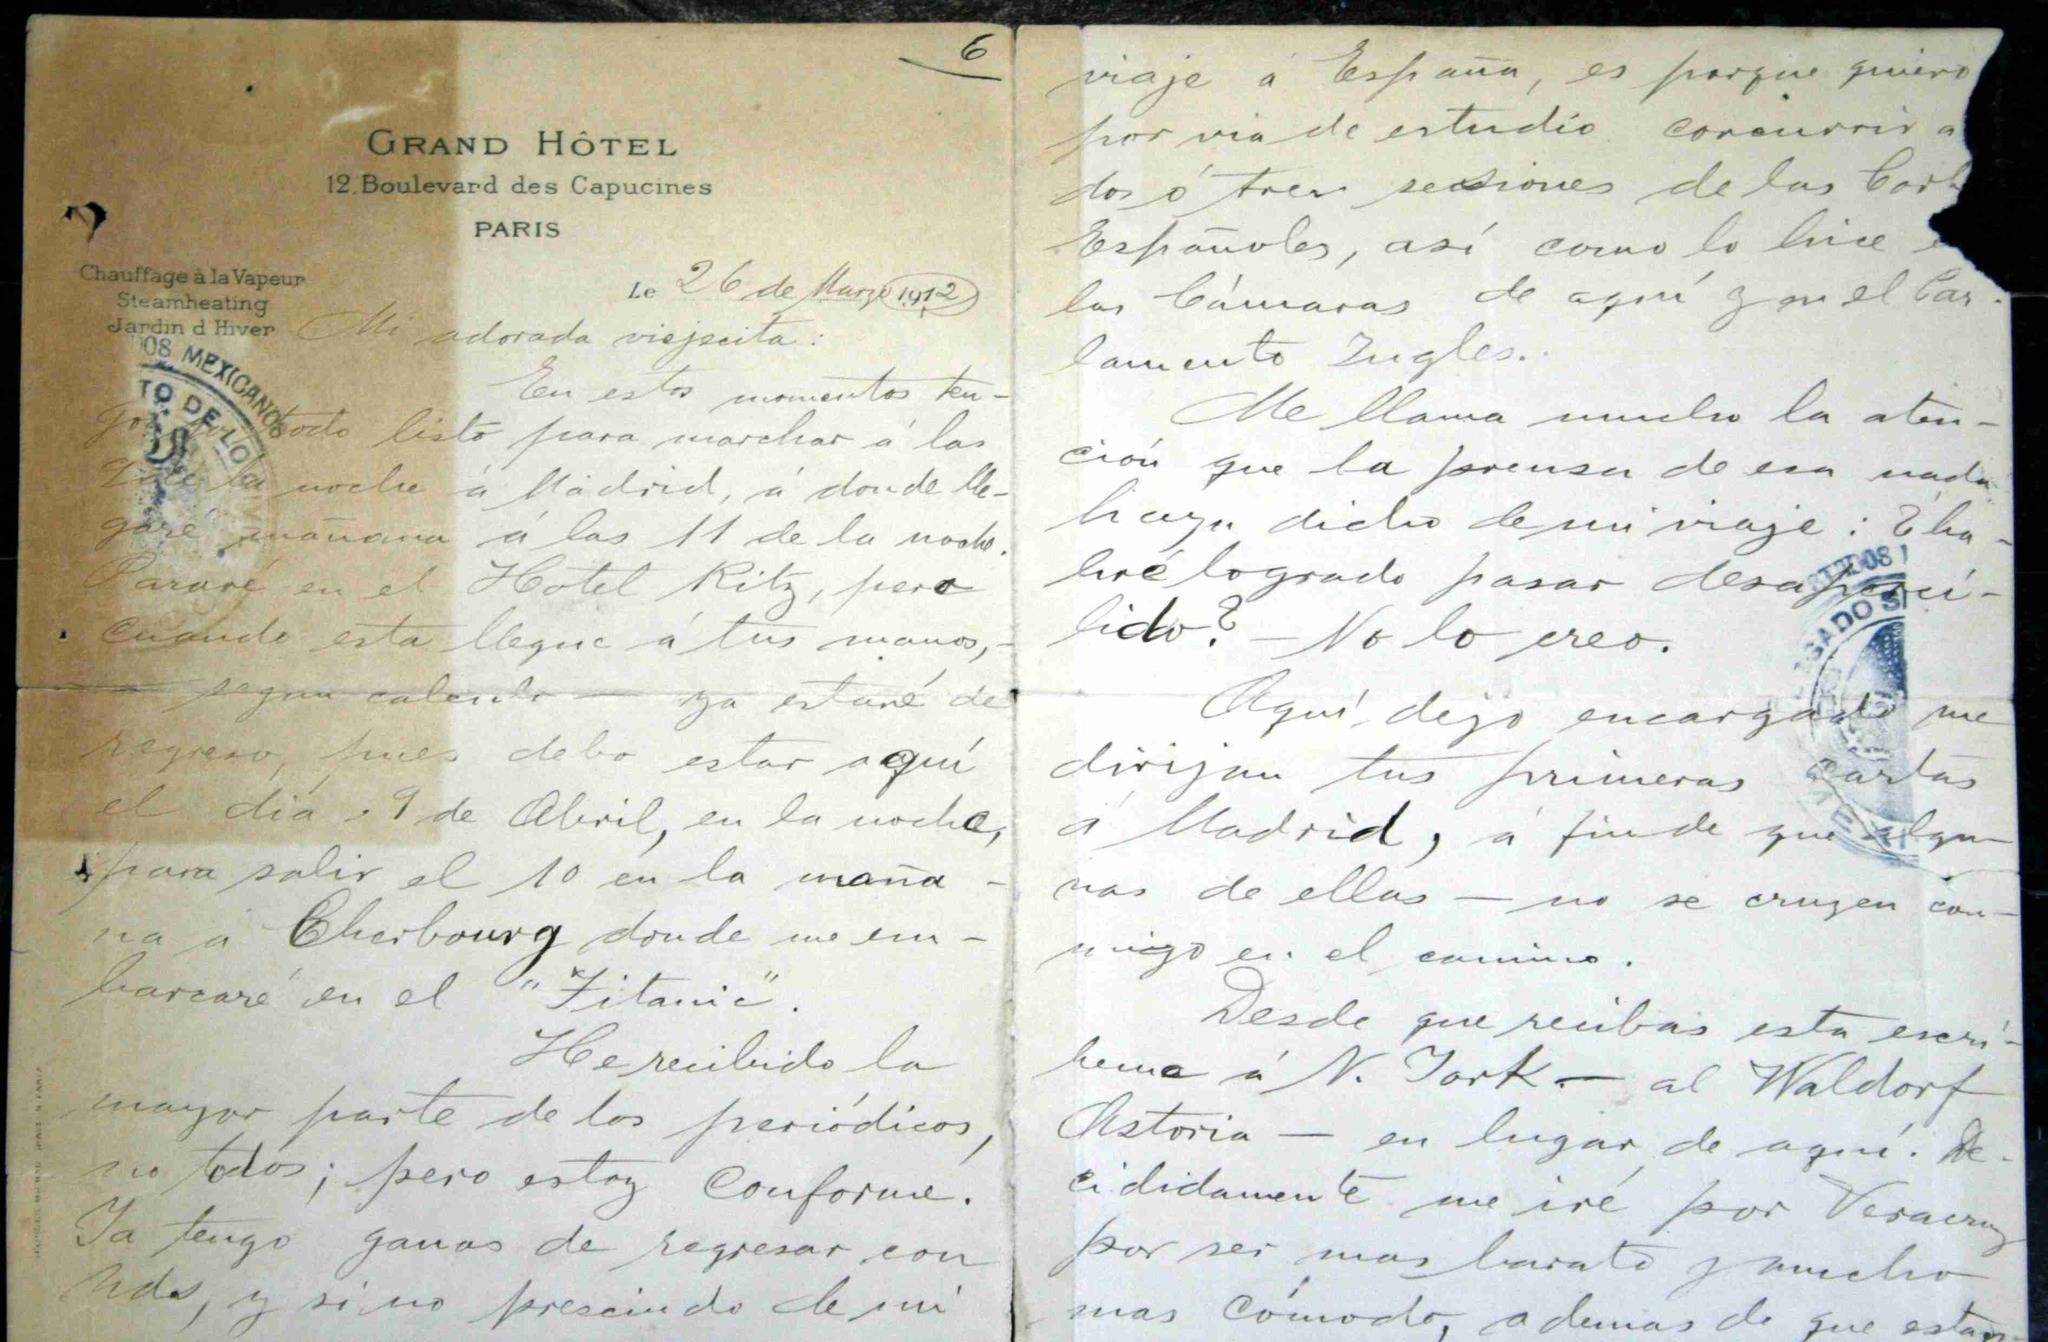 6
GRAND HÔTEL
12. Boulevard des Capucines
PARIS
Chauffage à la Vapeur
Steamheating
Jardin d'Hiver
Le 26 de Marzo 1912
Mi adorada viejecita:
En estos momentos ten-
go todo listo para marchar á las
la noche á Madrid, á donde lle-
garé mañana á las 11 de la noche.
Pararé en el Hotel Ritz, pero
cuando esta llegue á tus manos, -
segun calculo — ya estaré de
regreso, pues debo estar aquí
el dia 9 de Abril, en la noche,
para salir el 10 en la maña-
na a Cherbourg donde me em-
barcaré en el "Titanic".
He recibido la
mayor parte de los periódicos,
no todos; pero estoy conforme.
Ya tengo ganas de regresar con
Uds, y si no prescindo de mi
viaje á España, es porque quiero
por via de estudio concurrir a
dos ó tres sesiones de las Cort
Españoles, así como lo hice e
las Cámaras de aquí y en el Par-
lamento Ingles.
Me llama mucho la aten-
ción que la prensa de esa nada
haya dicho de mi viaje: ¿ha-
bré logrado pasar desaperci-
bido? — No lo creo.
Aquí dejo encargado me
dirijan tus primeras cartas
á Madrid, á fin de que algu-
nas de ellas — no se crucen con-
migo en el camino.
Desde que recibas esta escrí-
beme á N. York — al Waldorf
Astoria — en lugar de aquí. De-
cididamente me iré por Veracruz
por ser mas barato y mucho
mas cómodo, ademas de que esta
OS MEXICANOS
TO DE LIO
GADO S